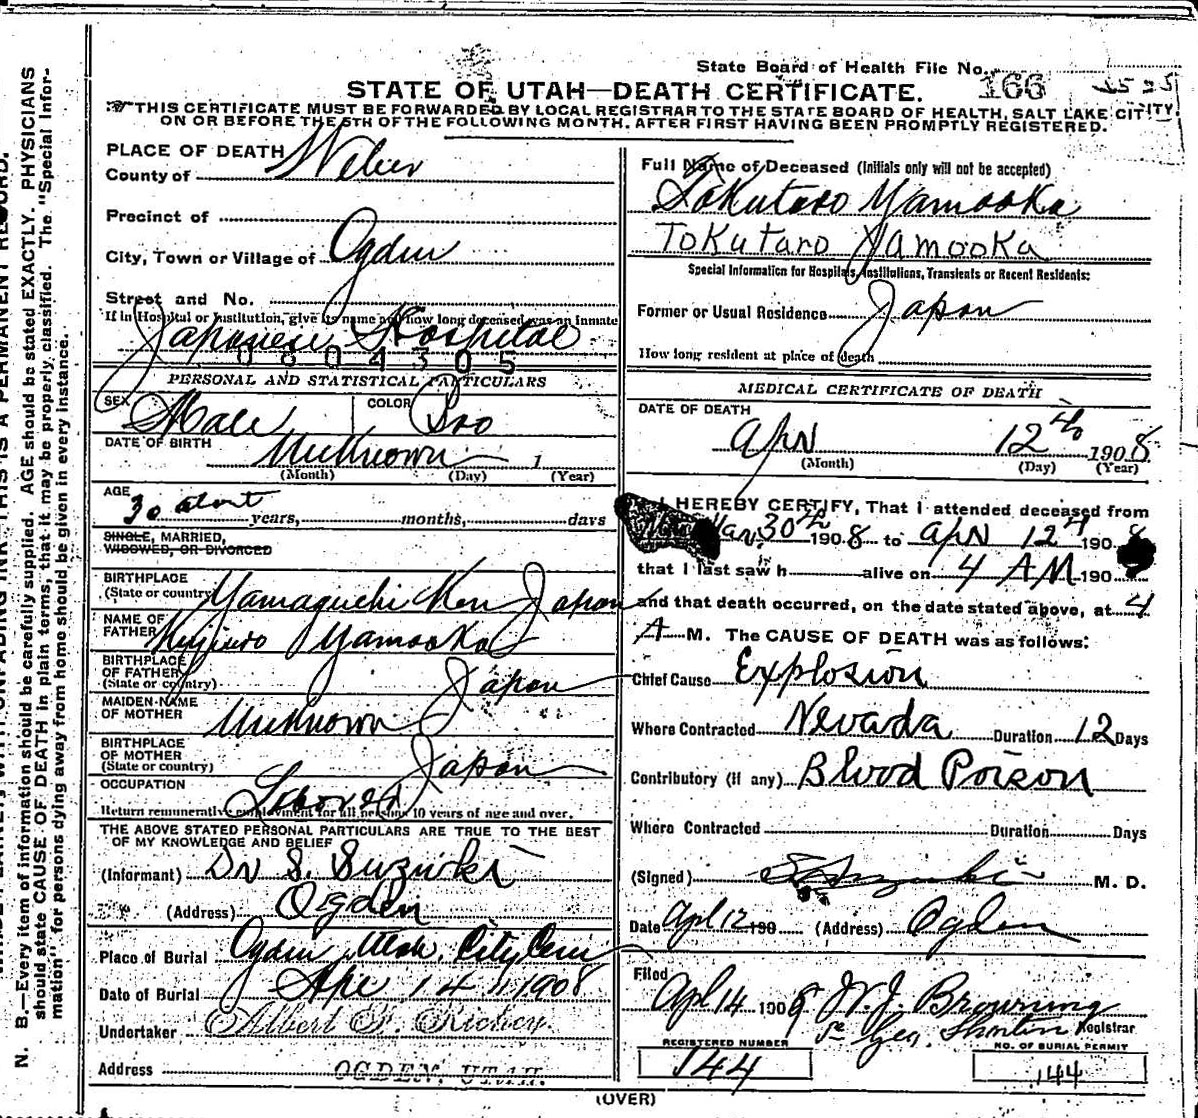 State Board of Health File No. 166 1525
STATE OF UTAH—DEATH CERTIFICATE.
THIS CERTIFICATE MUST BE FORWARDED BY LOCAL REGISTRAR TO THE STATE BOARD OF HEALTH, SALT LAKE CITY,
ON OR BEFORE THE 5TH OF THE FOLLOWING MONTH, AFTER FIRST HAVING BEEN PROMPTLY REGISTERED.
N. B.—Every item of information should be carefully supplied. AGE should be stated EXACTLY. PHYSICIANS
should state CAUSE OF DEATH in plain terms, that it may be properly classified. The "Special Infor-
mation" for persons dying away from home should be given in every instance.
PLACE OF DEATH
County of Weber
Precinct of
City, Town or Village of Ogden
Street and No.
If in Hospital or Institution, give its name and how long deceased was an inmate
Japanese Hospital
0 8 0 4 3 0 5
PERSONAL AND STATISTICAL PARTICULARS
SEX Male COLOR
DATE OF BIRTH Unknown 1
(Month) (Day) (Year)
AGE
30 about years, months, days
SINGLE, MARRIED,
WIDOWED, OR DIVORCED
BIRTHPLACE
(State or country) Yamaguchi Ken Japan
NAME OF
FATHER Yamooka
BIRTHPLACE
OF FATHER
(State or country) Japan
MAIDEN-NAME
OF MOTHER Unknown
BIRTHPLACE
OF MOTHER
(State or country) Japan
OCCUPATION
Laborer
Return remunerative employment for all persons 10 years of age and over.
THE ABOVE STATED PERSONAL PARTICULARS ARE TRUE TO THE BEST
OF MY KNOWLEDGE AND BELIEF
(Informant) Dr S. Suzuki
(Address) Ogden
Place of Burial Ogden Utah. City Cem
Date of Burial Apr 14 1908
Undertaker Albert Richey.
Address OGDEN, UTAH.
Full Name of Deceased (Initials only will not be accepted)
Tokutaro Yamooka
Tokutaro Yamooka
Special Information for Hospitals, Institutions, Transients or Recent Residents:
Former or Usual Residence Japan
How long resident at place of death
MEDICAL CERTIFICATE OF DEATH
DATE OF DEATH
Apr 12th 1908
(Month) (Day) (Year)
I HEREBY CERTIFY, That I attended deceased from
Mar 30th 1908 to Apr 12th 1908
that I last saw h alive on 4 AM 190
and that death occurred, on the date stated above, at 4
A M. The CAUSE OF DEATH was as follows:
Chief Cause Explosion
Where Contracted Nevada Duration 12 Days
Contributory (if any) Blood Poison
Where Contracted Duration Days
(Signed) S. Suzuki M. D.
Date Apl 12 190 (Address) Ogden
Filed
Apl 14 1908 W. J. Browning
Registrar
REGISTERED NUMBER
144
NO. OF BURIAL PERMIT
144
(OVER)